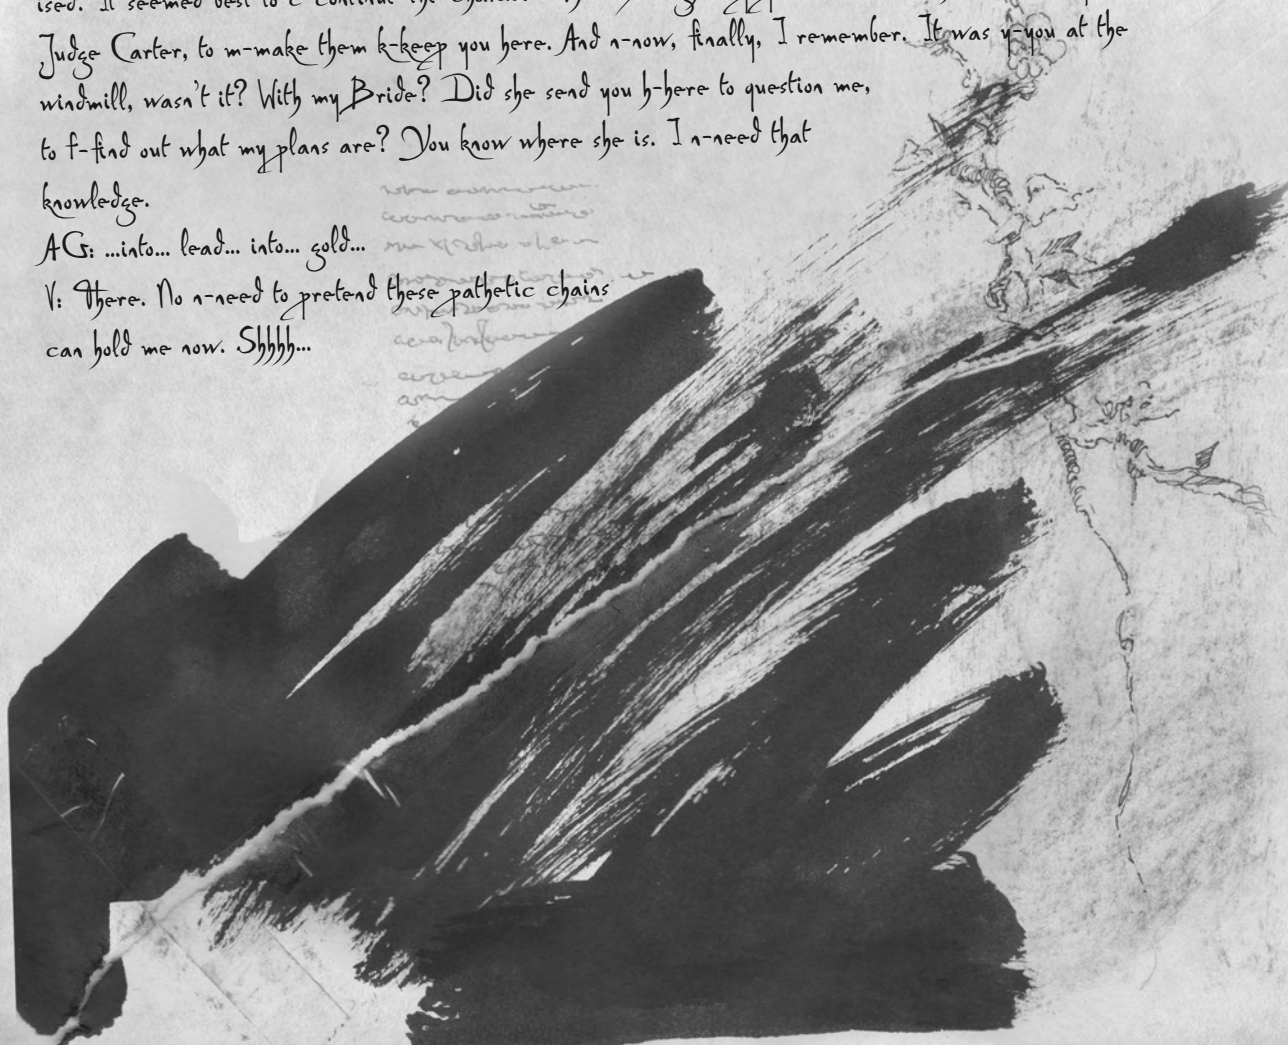 ised. It seemed best to c-continue the charade
Judge Carter, to m-make them k-keep you here. And n-now, finally, I remember. It was y-you at the
windmill, wasn't it? With my Bride? Did she send you h-here to question me,
to f-find out what my plans are? You know where she is. I n-need that
knowledge.
AG: ...into... lead... into... gold...
V: There. No n-need to pretend these pathetic chains
can hold me now. Shhhh...